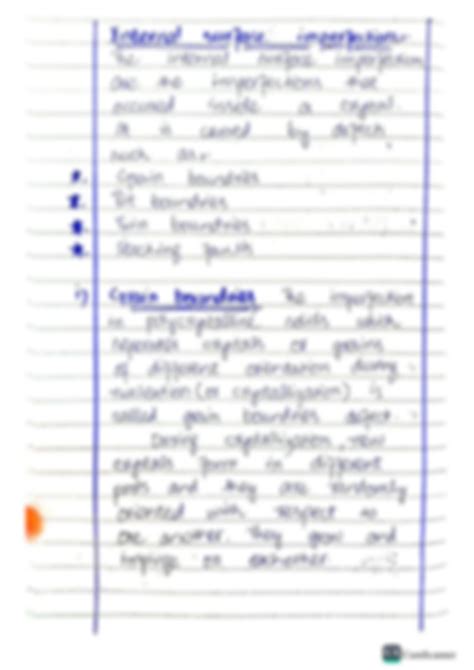 Internal surface imperfections-
The internal surface imperfection
are the imperfections that
occured inside a crystal.
It is caused by defects
such as-
1. Grain boundries
2. Tilt boundries
3. Twin boundries
4. Stacking faults
i) Grain boundries The imperfection
in polycrystalline solids which
seperates crystals or grains
of different orientation during
nucleation (or crystallization) is
called grain boundries defect.
During crystallization, new
crystals form in different
parts and they are randomly
oriented with respect to
one another. They grow and
impinge on eachother.
CamScanner